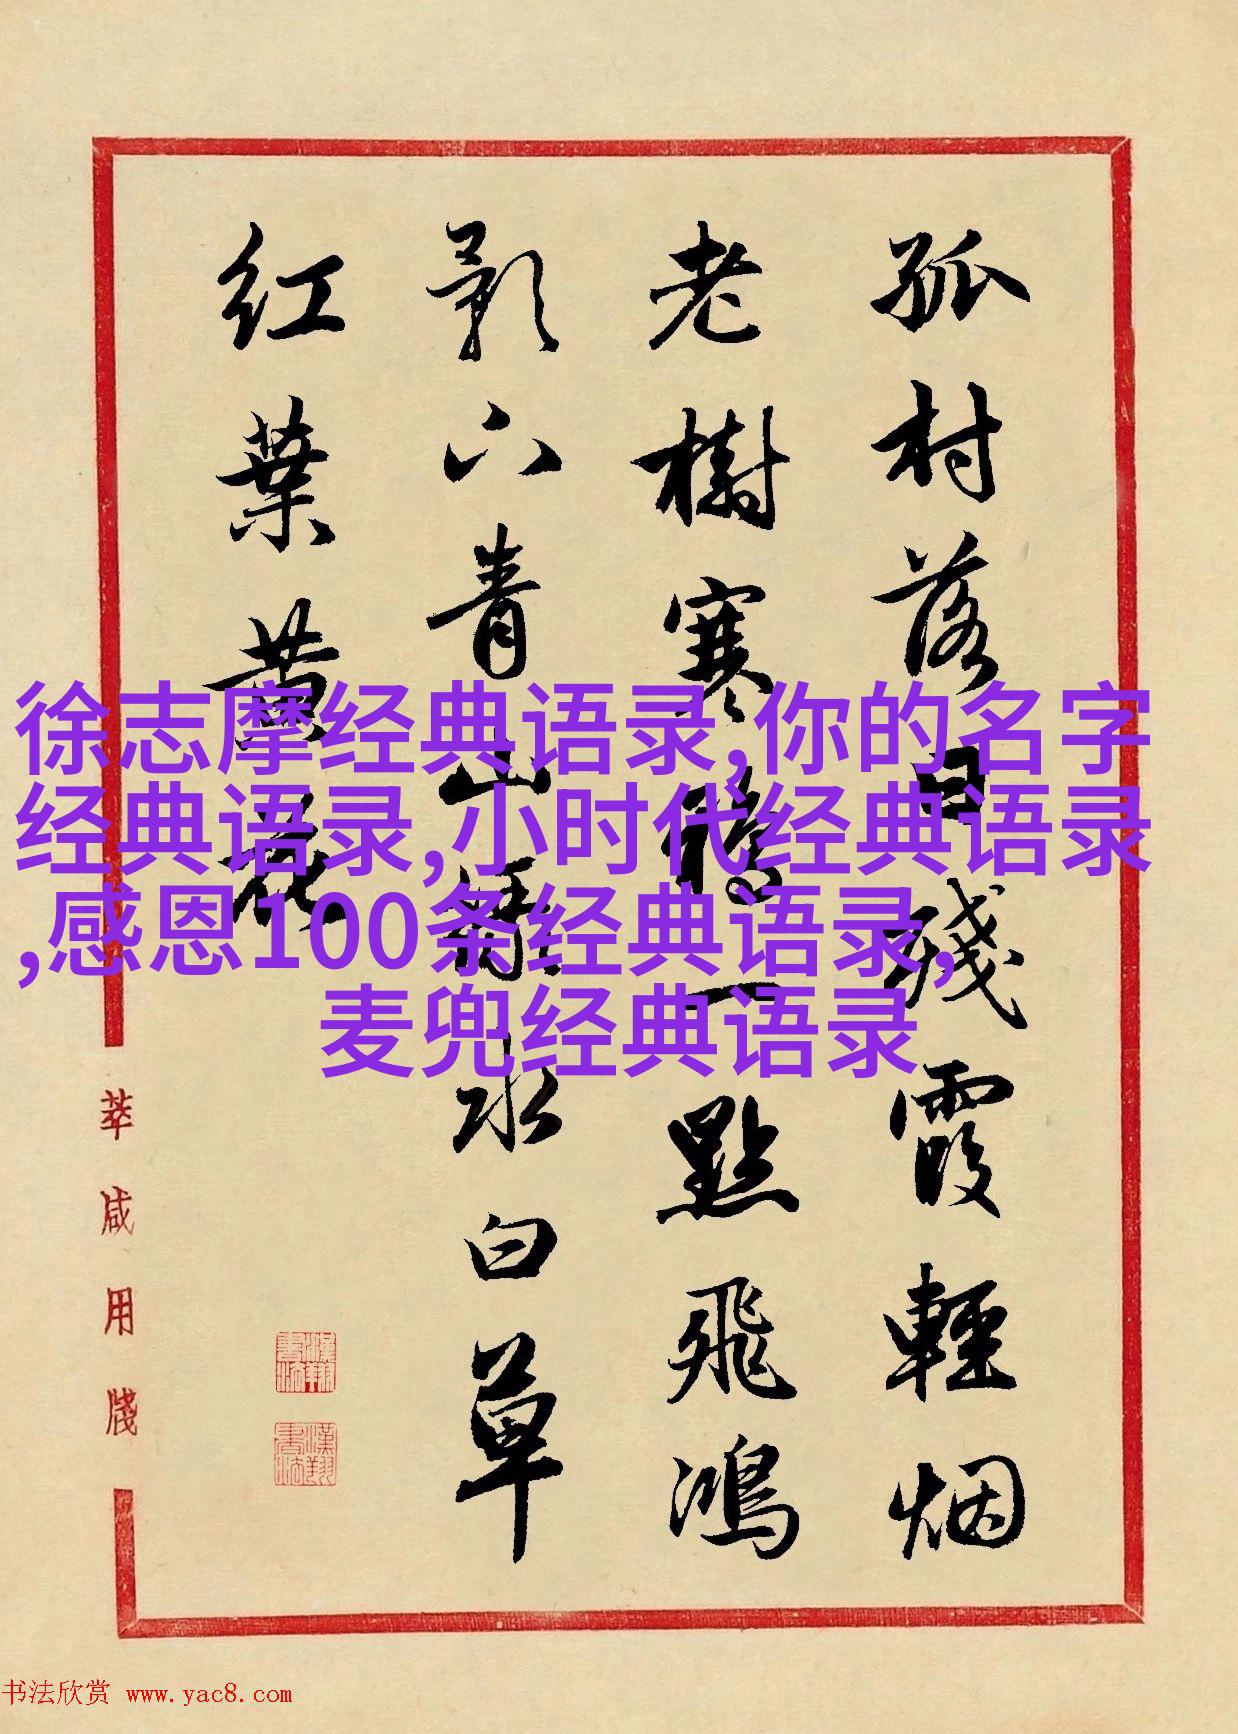 孤村落日殘霞輕烟
老樹寒鴉一點飛鴻
影下青山綠水白草
紅葉黃花
徐志摩经典语录,你的名字
经典语录,小时代经典语录
,感恩100条经典语录,
麦兜经典语录
咸用牋
漢翔書法
漢翔書法
书法欣赏 www.yac8.com